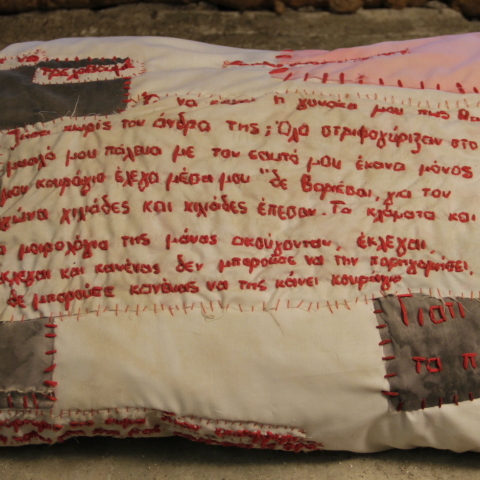 τρελαθούμε
να κάνει η γυναίκα μου πως θα
ζήσει χωρίς τον άνδρα της; Όλα στριφογύριζαν στο
μυαλό μου πάλευα με τον εαυτό μου έκανα μόνος
μου κουράγιο έλεγα μέσα μου "δε βαριέσαι, για τον
χιλιάδες και χιλιάδες έπεσαν. Τα κλάματα και
μοιρολόγια της μάνας ακούγονταν, έκλεγαι,
έκλεγαι και κανένας δεν μπορούσε να την παρηγορήσει,
δε μπορούσε κανένας να της κάνει κουράγιο
Γιατί
το π